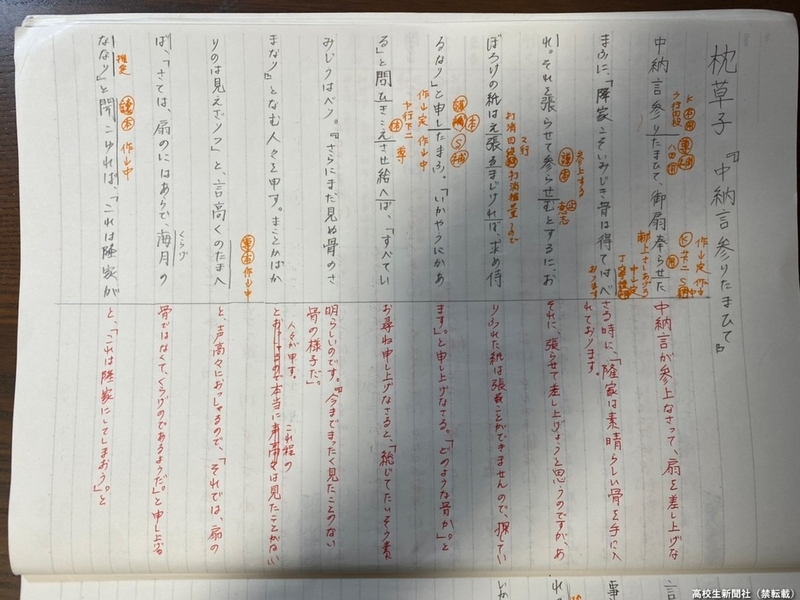 枕草子『中納言参りたまひて』
中納言参りたまひて、御扇奉らせた
まふに、「隆家こそいみじき骨は得てはべ
れ。それを張らせて参らせむとするに、お
ぼろけの紙はえ張るまじければ、求め侍
るなり」と申したまふ。「いかやうにかあ
る」と問ひきこえさせ給へば、「すべてい
みじうはべり。『さらにまだ見ぬ骨のさ
まなり』となむ人々申す。まことにかばか
りのは見えざりつ」と、言高くのたまへ
ば、「さては、扇のにはあらで、海月の
ななり」と聞こゆれば、「これは隆家が
中納言が参上なさって、扇を差し上げな
さる時に、「隆家は素晴らしい骨を手に入
れております。
それに、張らせて差し上げようと思うのですが、あ
りふれた紙は張ることができませんので、探してい
ます。」と申し上げなさる。「どのような骨か。」と
お尋ね申し上げなさると、「総じてたいそう素
晴らしいのです。『今までまったく見たことのない
骨の様子だ。』
人々が申す。
これ程の
本当に
は見たことがない
と、声高々におっしゃるので、「それでは、扇の
骨ではなくて、くらげのであるようだ。」と申し上げる
と、「これは隆家にしてしまおう。」と
くらげ
推定
作山中
参上する
意志
高校生新聞社（禁転載）